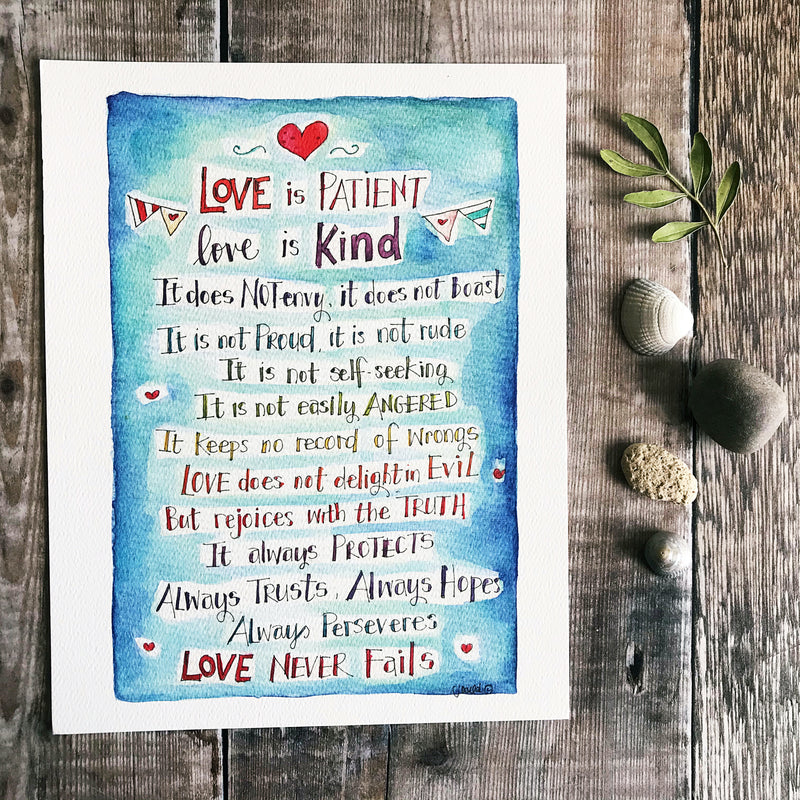 LOVE is PATIENT
love is Kind
It does NOT envy, it does not Boast
It is not PROUD, it is not rude
It is not self-seeking
It is not easily ANGERED
It keeps no record of wrongs
LOVE does not delight in EviL
But rejoices with the TRUTH
It always PROTECTS
ALways TRUSTS, ALways HOPES
ALways PERSEVERES
LOVE NEVER Fails